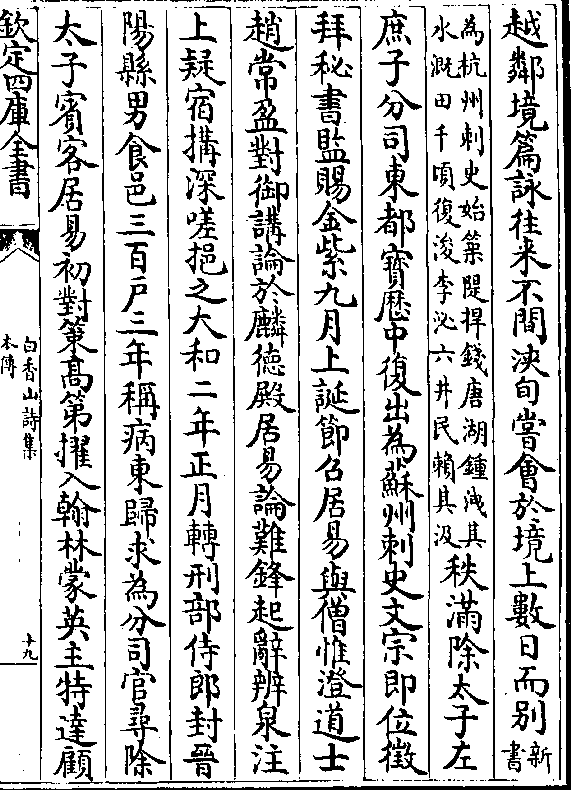 越鄰境篇詠往来不間浹旬嘗㑹於境上數日而别新書
為杭州刺史始築隄捍錢唐湖鍾洩其水溉田千頃復浚李泌六井民賴其汲秩滿除太子左
庶子分司東都寳厯中復出為蘇州刺史文宗即位徵
拜秘書監賜金紫九月上誕節召居易與僧惟澄道士
趙常盈對御講論於麟德殿居易論難鋒起辭辨泉注
上疑宿搆深嗟挹之大和二年正月轉刑部侍郎封晉
陽縣男食邑三百户三年稱病東歸求為分司官尋除
太子賓客居易初對策髙第擢入翰林蒙英主特達顧
欽定四庫全書
白香山詩集
本傳
十九